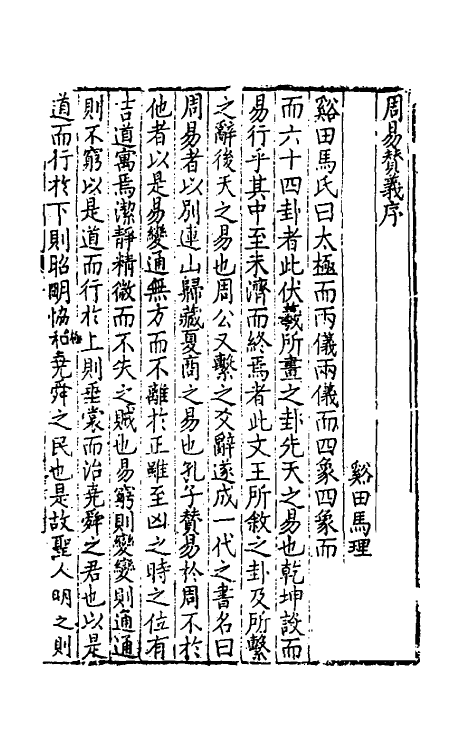 周易賛義序
谿田馬理
谿田馬氏曰太極而兩儀兩儀而四象四象而
而六十四卦者此伏羲所畫之卦先天之易也乾坤設而
易行乎其中至未濟而終焉者此文王所敘之卦及所繫
之辭後天之易也周公又繫之爻辭遂成一代之書名曰
周易者以別連山歸藏夏商之易也孔子賛易於周不於
他者以是易變通無方而不離於正雖至凶之時之位有
吉道寓焉潔靜精微而不失之賊也易窮則變變則通通
則不窮以是道而行於上則垂裳而治堯舜之君也以是
道而行於下則昭明恊和堯舜之民也是故聖人明之則